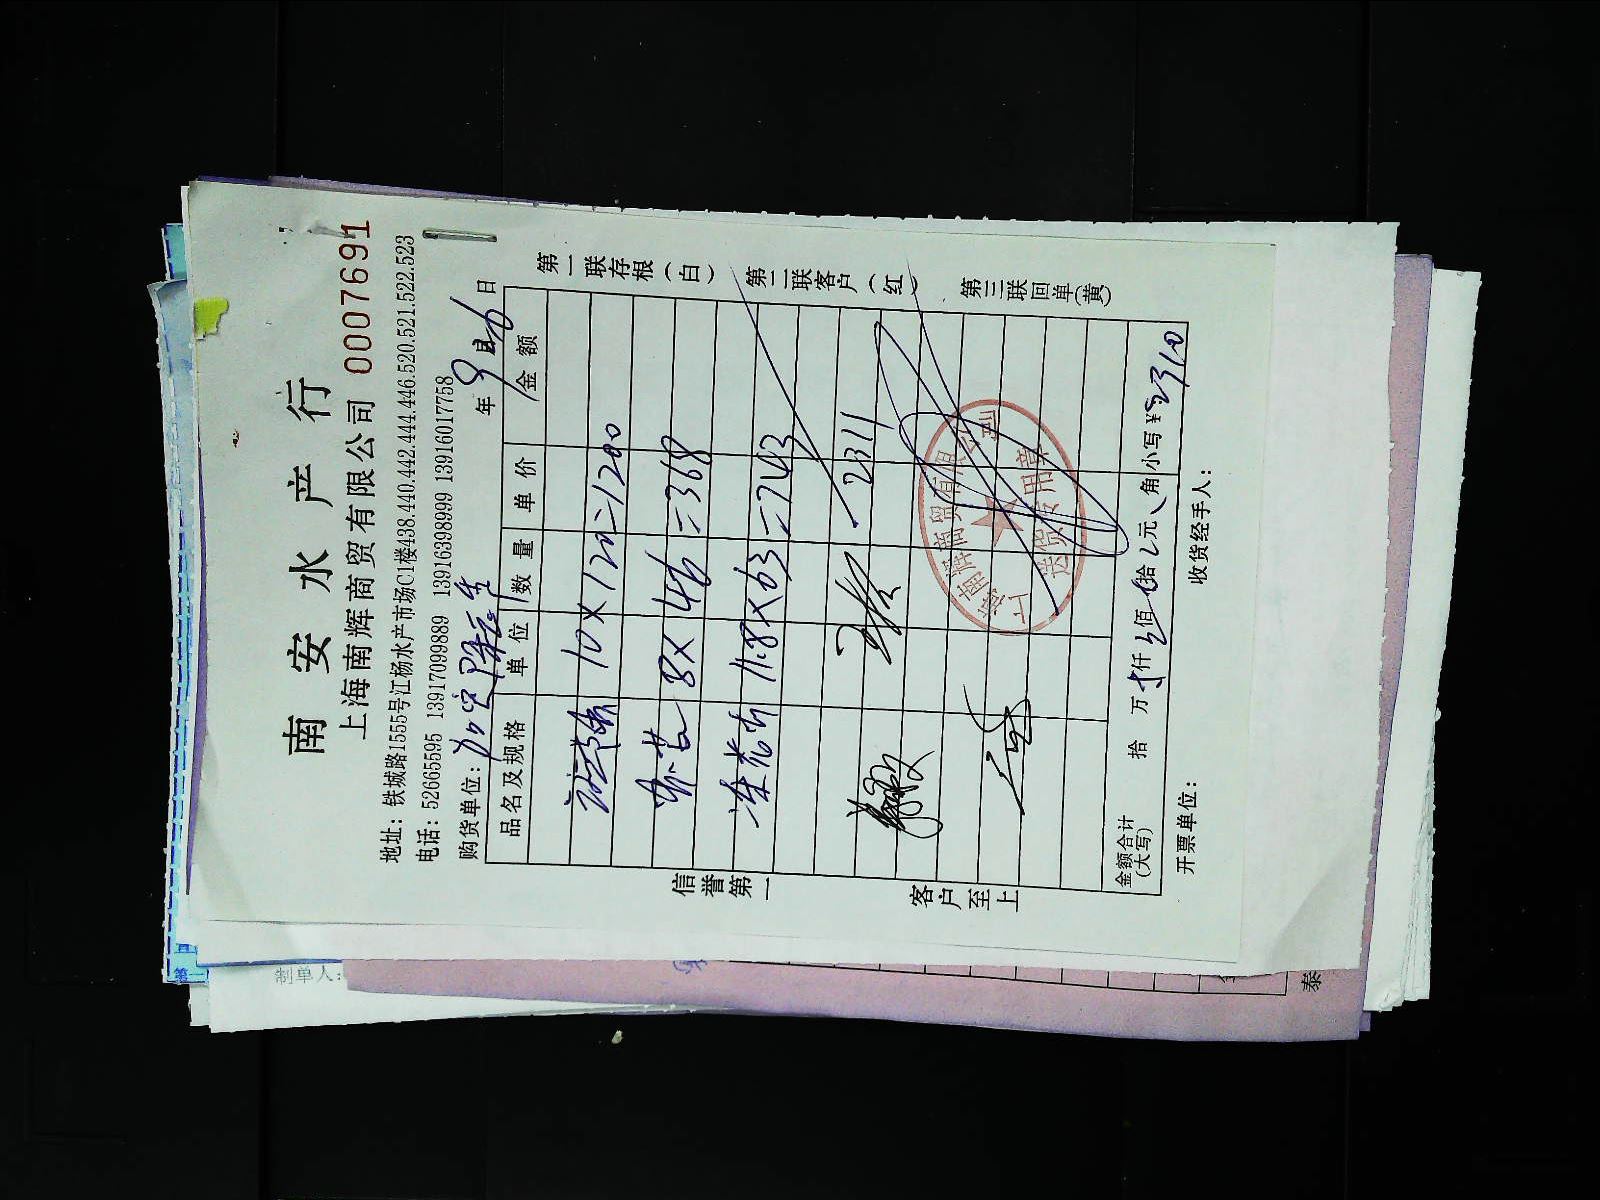 南安水产行
上海南辉商贸有限公司 0007691
地址：铁城路1555号江杨水产市场C1楼438.440.442.444.446.520.521.522.523
电话：52665595 13917099889 13916398999 13916017758
购货单位： 年9月6日
品名及规格 单位 数量 单价 金额
10×120=1200
8×46=368
11.8×63=743
2311
金额合计(大写) 拾 万 仟 佰 拾 元 角 小写¥2310
开票单位： 收货经手人：
第一联存根(白) 第二联客户(红) 第三联回单(黄)
信誉第一 客户至上
上海南辉商贸有限公司
送货专用章
制单人：
泰